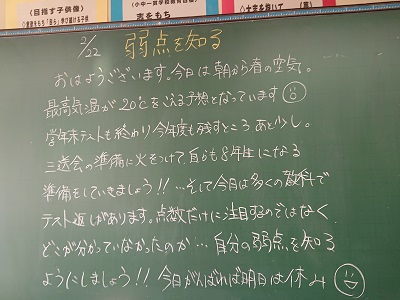 〈目指す子供像〉
志をもち
3/22 弱点を知る
おはようございます。今日は朝から春の空気。
最高気温が20℃をこえる予想となっています
学年末テストも終わり今年度も残すところあと少し。
三送会の準備に火をつけて、自らも8年生になる
準備をしていきましょう!! …そして今日は多くの教科で
テスト返しがあります。点数だけに注目するのではなく
どこが分かっていなかったのか…自分の弱点を知る
ようにしましょう!! 今日がんばれば明日は休み